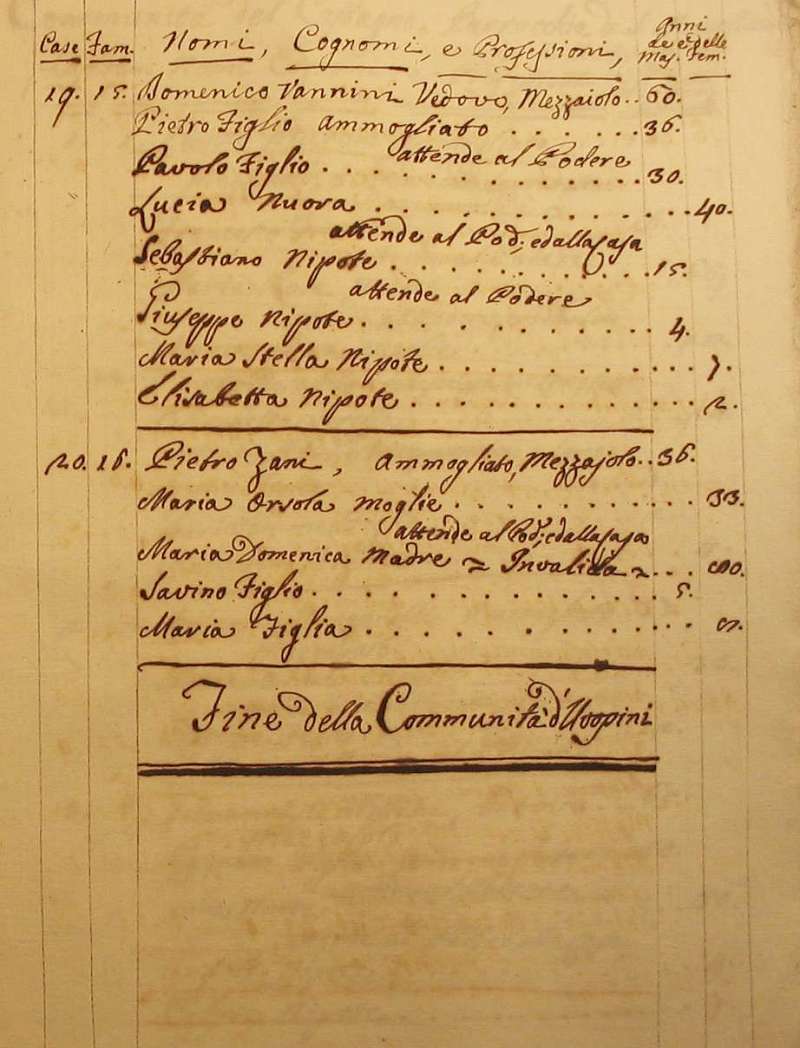 Case Fam. Nomi, Cognomi, e Professioni, Anni de' Mas. e delle Fem.
19. 15. Domenico Vannini Vedovo, Mezzaiolo.. 60.
Pietro Figlio Ammogliato . . . . . . 36.
attende al Podere
Pavolo Figlio . . . . . . . . . . . . 30.
Lucia Nuora . . . . . . . . . . . . 40.
attende al Pod; ed alla Casa
Sebastiano Nipote . . . . . . . . . . 15.
attende al Podere
Giuseppe Nipote . . . . . . . . . . 4.
Maria Stella Nipote . . . . . . . . . . 7.
Elisabetta Nipote . . . . . . . . . . . 2.
20. 16. Pietro Zani, Ammogliato, Mezzajolo.. 36.
Maria Orsola Moglie . . . . . . . . . . 33.
attende al Pod; ed alla Casa
Maria Domenica Madre = Invalida = . . .
Savino Figlio . . . . . . . . . . . . . 5.
Maria Figlia . . . . . . . . . . . .
Fine della Communità d'Uopini